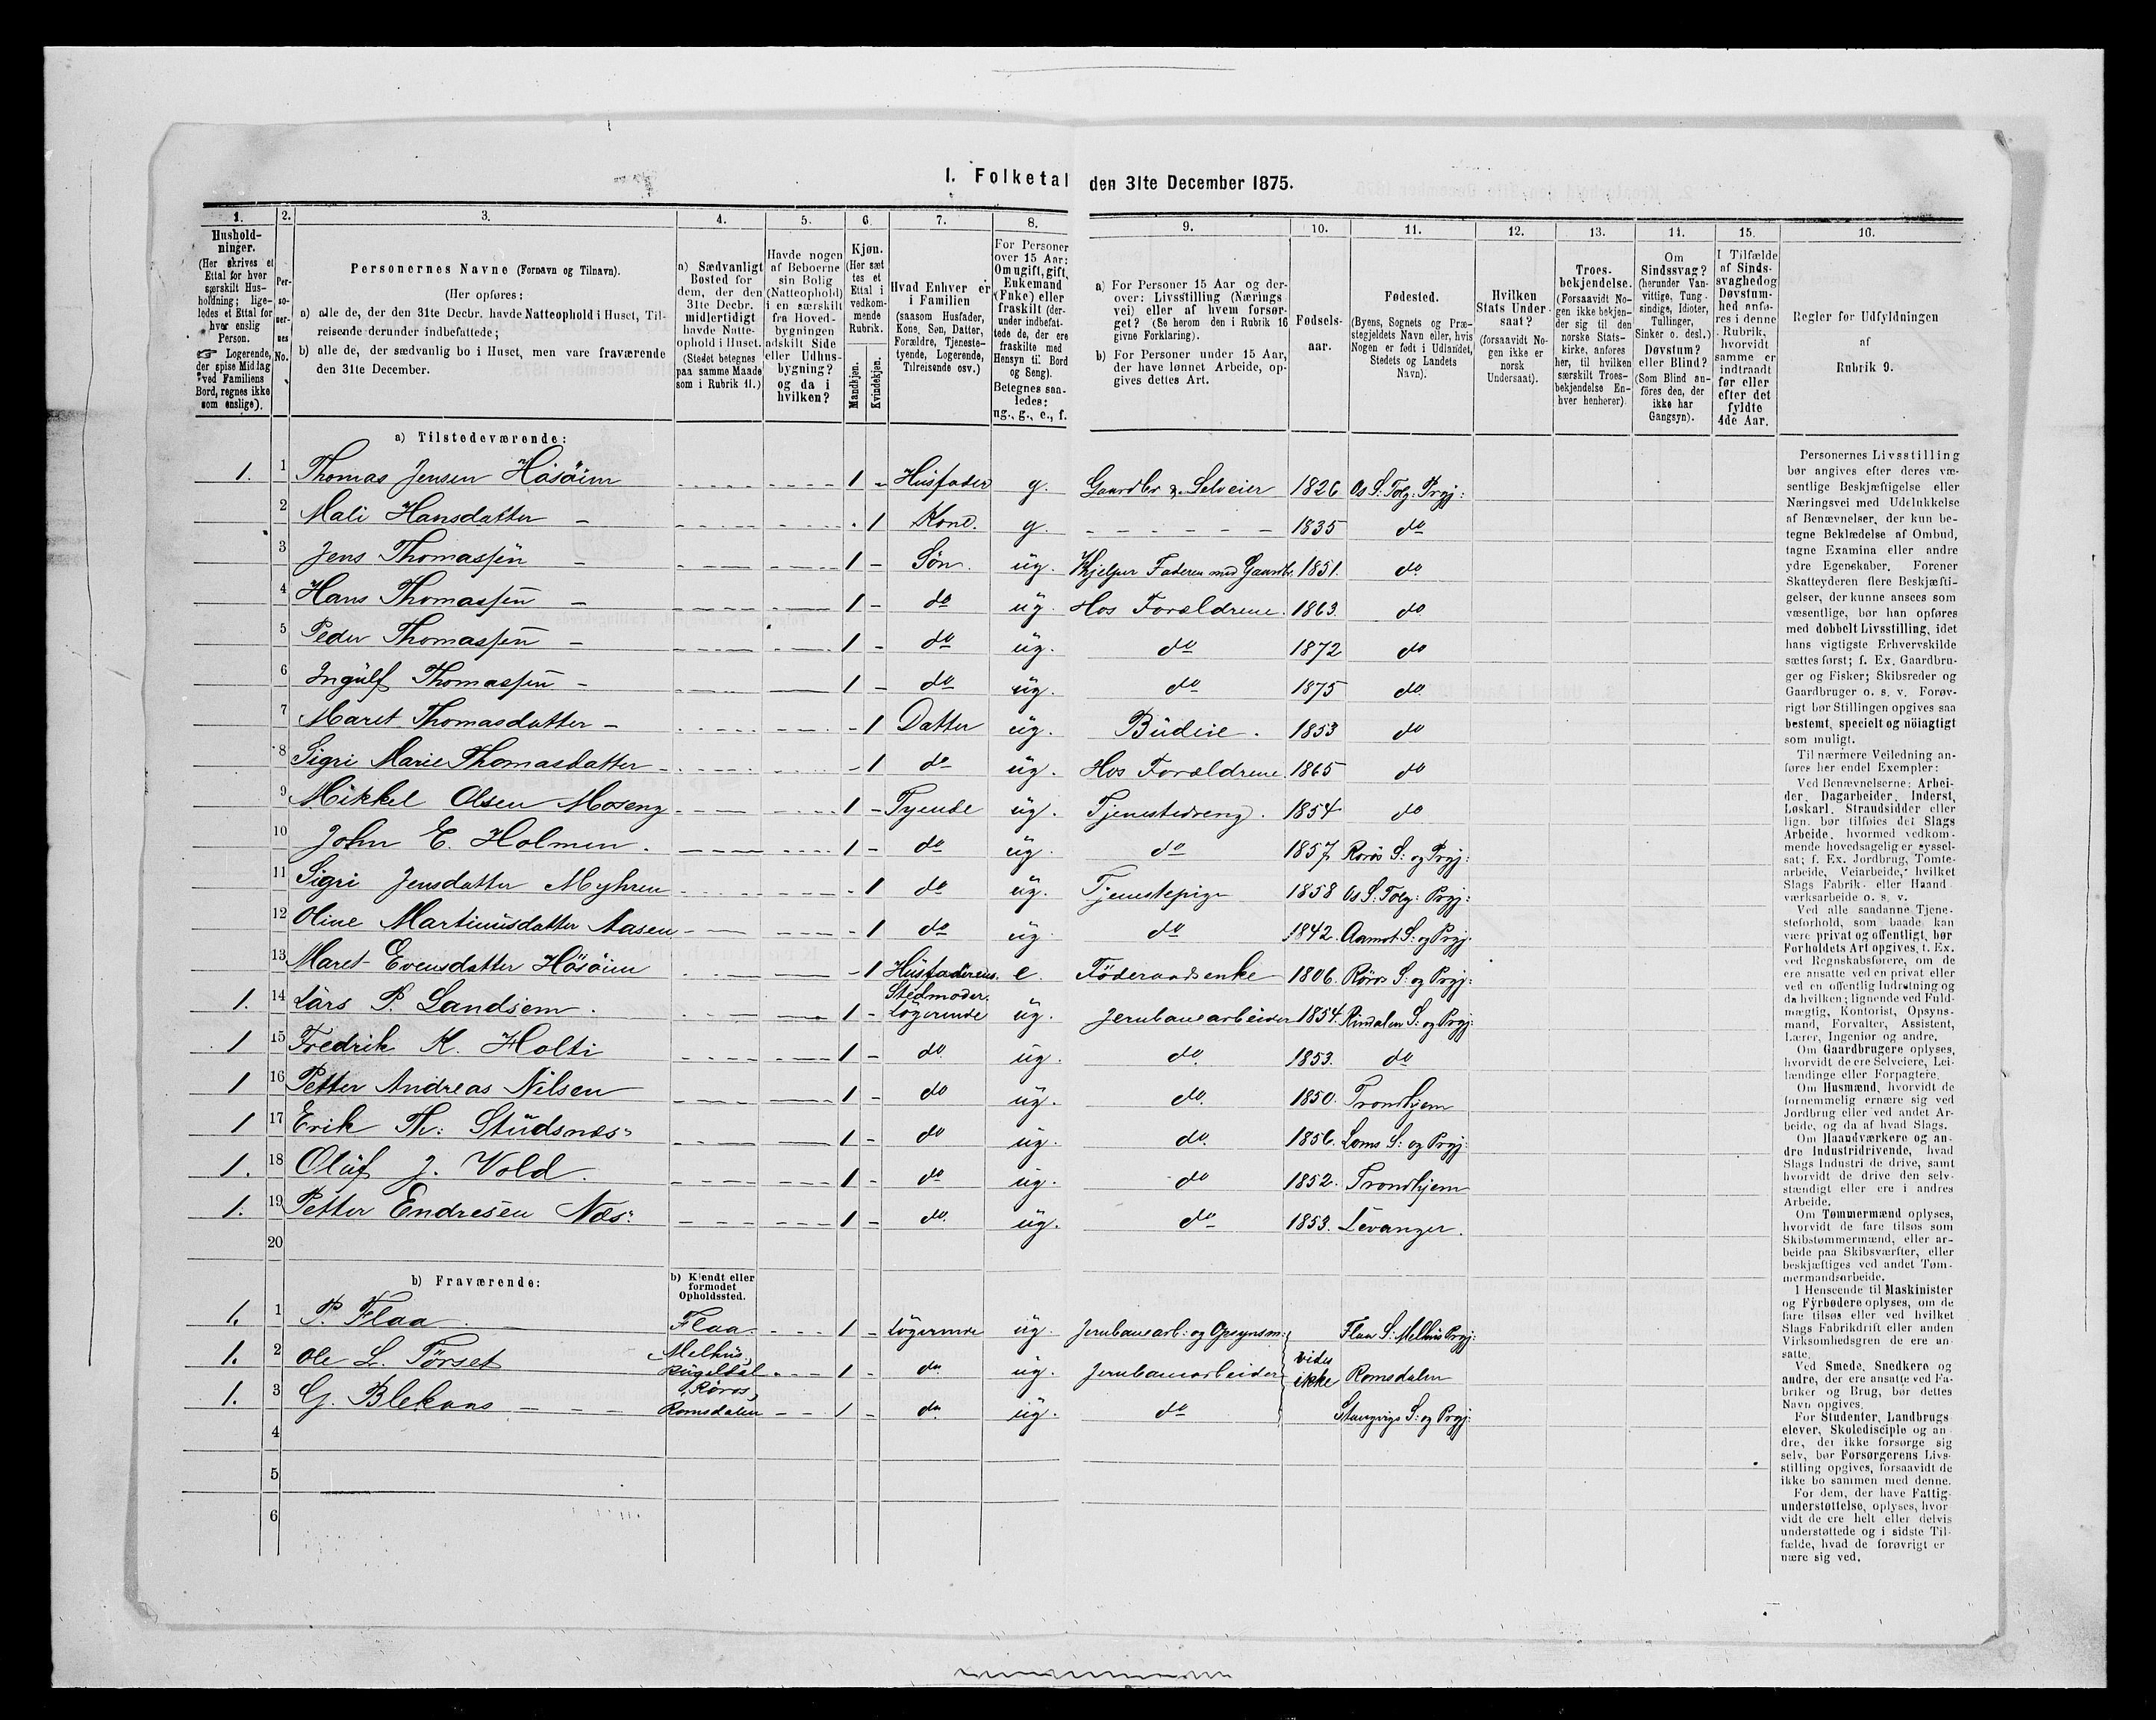 I. Folketal den 31te December 1875.
1. 2. 3. 4. 5. 6. 7. 8. 9. 10. 11. 12. 13. 14. 15. 16.
Hushold-
ninger.
(Her skrives et
Ettal for hver
særskilt Hus-
holdning; lige-
ledes et Ettal for
hver enslig
Person.
☞ Logerende,
der spise Middag
ved Familiens
Bord, regnes ikke
som enslige).
Per-
so-
ner-
nes
No.
Personernes Navne (Fornavn og Tilnavn).
(Her opføres:
a) alle de, der den 31te Decbr. havde Natteophold i Huset, Til-
reisende derunder indbefattede;
b) alle de, der sædvanlig bo i Huset, men vare fraværende
den 31te December.
a) Sædvanligt
Bosted for
dem, der den
31te Decbr.
midlertidigt
havde Natte-
ophold i Huset.
(Stedet betegnes
paa samme Maade
som i Rubrik 11.)
Havde nogen
af Beboerne
sin Bolig
(Natteophold)
i en særskilt
fra Hoved-
bygningen
adskilt Side
eller Udhus-
bygning?
og da i
hvilken?
Kjøn.
(Her sæt
tes et
Ettal i
vedkom-
mende
Rubrik.
Mandkjøn.
Kvindekjøn.
Hvad Enhver er
i Familien
(saasom Husfader,
Kone, Søn, Datter,
Forældre, Tjeneste-
tyende, Logerende,
Tilreisende osv.)
For Personer
over 15 Aar:
Om ugift, gift,
Enkemand
(Enke) eller
fraskilt (der-
under indbefat-
tede de, der ere
fraskilte med
Hensyn til Bord
og Seng).
Betegnes saa-
ledes:
ug., g., e., f.
a) For Personer 15 Aar og der-
over: Livsstilling (Nærings
vei) eller af hvem forsør-
get? (Se herom den i Rubrik 16
givne Forklaring).
b) For Personer under 15 Aar,
der have lønnet Arbeide, op-
gives dettes Art.
Fødsels-
aar.
Fødested.
(Byens, Sognets og Præ-
stegjeldets Navn eller, hvis
Nogen er født i Udlandet,
Stedets og Landets
Navn).
Hvilken
Stats Under-
saat?
(forsaavidt No-
gen ikke er
norsk
Undersaat).
Troes-
bekjendelse.
(Forsaavidt No-
gen ikke bekjen-
der sig til den
norske Stats-
kirke, anføres
her, til hvilken
særskilt Troes-
bekjendelse En-
hver henhører).
Om
Sindssvag?
(herunder Van-
vittige, Tung-
sindige, Idioter,
Tullinger,
Sinker o. desl.)
Døvstum?
eller Blind?
(Som Blind an-
føres den, der
ikke har
Gangsyn).
I Tilfælde
af Sinds-
svaghed og
Døvstum-
hed anfø-
res i denne
Rubrik,
hvorvidt
samme er
indtraadt
før eller
efter det
fyldte
4de Aar.
Regler for Udfyldningen
af
Rubrik 9.
a) Tilstedeværende:
1. 1 Thomas Jensen Hösöien 1 - Husfader g. Gaardbr & Selveier 1826 Os S: Tolg: Prgj:
2 Mali Hansdatter - 1 Kone. g. - - - 1835 do
3 Jens Thomassen - 1 - Sön. ug. Hjelper Faderen med Gaardbr. 1851. do.
4 Hans Thomassen - 1 - do ug. Hos Forældrene. 1863. do
5 Peder Thomassen - 1 - do ug. do 1872 do
6 Ingulf Thomassen - 1 - do ug. do 1875 do.
7 Maret Thomasdatter - - 1 Datter ug. Budeie. 1853 do
8 Sigri Marie Thomasdatter - - 1 do ug. Hos Forældrene. 1865 do
9 Mikkel Olsen Moseng 1 - Tyende ug. Tjenestedreng. 1854 do
10 John E. Holmen. 1 - do ug. do 1857. Rörös S: og Prgj:
11 Sigri Jensdatter Myhren - 1 do ug. Tjenestepige 1858 Os S: Tolg: Prgj:
12 Oline Martinusdatter Aasen - 1 do ug. do 1842. Aamot S: og Prgj.
13 Maret Evensdatter Hösöien - 1 Husfaderens Stedmoder. e. Föderaadsenke 1806. Rörös S: og Prgj:
1. 14 Lars P. Landsem. 1 - Logerende ug. Jernbanearbeider 1854. Rindalen S: og Prgj:
1 15 Fredrik K. Holti 1 - do. ug. do. 1853. do
1 16 Petter Andreas Nilsen 1 - do ug. do. 1850. Trondhjem
1 17 Erik Th: Studsnæs 1 - do ug. do. 1856. Loms S: og Prgj:
1. 18 Oluf J. Vold. 1 - do ug. do 1852. Trondhjem
1. 19 Petter Endresen Næs: 1 - do. ug. do 1853. Levanger.
20
b) Fraværende:
b) Kjendt eller
formodet
Opholdssted.
1. 1 P. Flaa. Flaa. 1 - Logerende ug. Jernbanearb: og Opsynsm: Flaa S: Melhus Prgj:
1. 2 Ole L. Törset Melhus. Rugeldal Röros 1 - do. ug. Jernbanearbeider vides ikke Romsdalen
1. 3 G. Blekans - - - Romsdalen 1 - do. ug. do Stangvigs S: og Prgj:
4
5
6
Personernes Livsstilling
bør angives efter deres væ-
sentlige Beskjæftigelse eller
Næringsvei med Udelukkelse
af Benævnelser, der kun be-
tegne Beklædelse af Ombud,
tagne Examina eller andre
ydre Egenskaber. Forener
Skatteyderen flere Beskjæfti-
gelser, der kunne ansees som
væsentlige, bør han opføres
med dobbelt Livsstilling, idet
hans vigtigste Erhvervskilde
sættes først; f. Ex. Gaardbru-
ger og Fisker; Skibsreder og
Gaardbruger o. s. v. Forøv-
rigt bør Stillingen opgives saa
bestemt, specielt og nöiagtigt
som muligt.
Til nærmere Veiledning an-
føres her endel Exempler:
Ved Benævnelserne: Arbei-
der, Dagarbeider, Inderst,
Løskarl, Strandsidder eller
lign. bør tilføies det Slags
Arbeide, hvormed vedkom-
mende hovedsagelig er syssel-
sat; f. Ex. Jordbrug, Tomte-
arbeide, Veiarbeide, hvilket
Slags Fabrik- eller Haand-
værksarbeide o. s. v.
Ved alle saadanne Tjene-
steforhold, som baade kan
være privat og offentligt, bør
Forholdets Art opgives, f. Ex.
ved Regnskabsførere, om de
ere ansatte ved en privat eller
ved en offentlig Indretning og
da hvilken; lignende ved Fuld-
mægtig, Kontorist, Opsyns-
mand, Forvalter, Assistent,
Lærer, Ingeniør og andre.
Om Gaardbrugere oplyses,
hvorvidt de ere Selveiere, Lei-
lændinge eller Forpagtere.
Om Husmænd, hvorvidt de
fornemmelig ernære sig ved
Jordbrug eller ved andet Ar-
beide, og da af hvad Slags.
Om Haandværkere og an-
dre Industridrivende, hvad
Slags Industri de drive, samt
hvorvidt de drive den selv-
stændigt eller ere i andres
Arbeide.
Om Tømmermænd oplyses,
hvorvidt de fare tilsøs som
Skibstømmermænd, eller ar-
beide paa Skibsværfter, eller
beskjæftiges ved andet Tøm-
mermandsarbeide.
I Henseende til Maskinister
og Fyrbødere oplyses, om de
fare tilsøs eller ved hvilket
Slags Fabrikdrift eller anden
Virksomhedsgren de ere an-
satte.
Ved Smede, Snedkere og
andre, der ere ansatte ved Fa-
briker og Brug, bør dettes
Navn opgives.
For Studenter, Landbrugs-
elever, Skoledisciple og an-
dre, der ikke forsørge sig
selv, bør Forsørgerens Livs-
stilling opgives, forsaavidt de
ikke bo sammen med denne.
For dem, der have Fattig-
understøttelse, oplyses, hvor-
vidt de ere helt eller delvis
understøttede og i sidste Til-
fælde, hvad de forøvrigt er
nære sig ved.